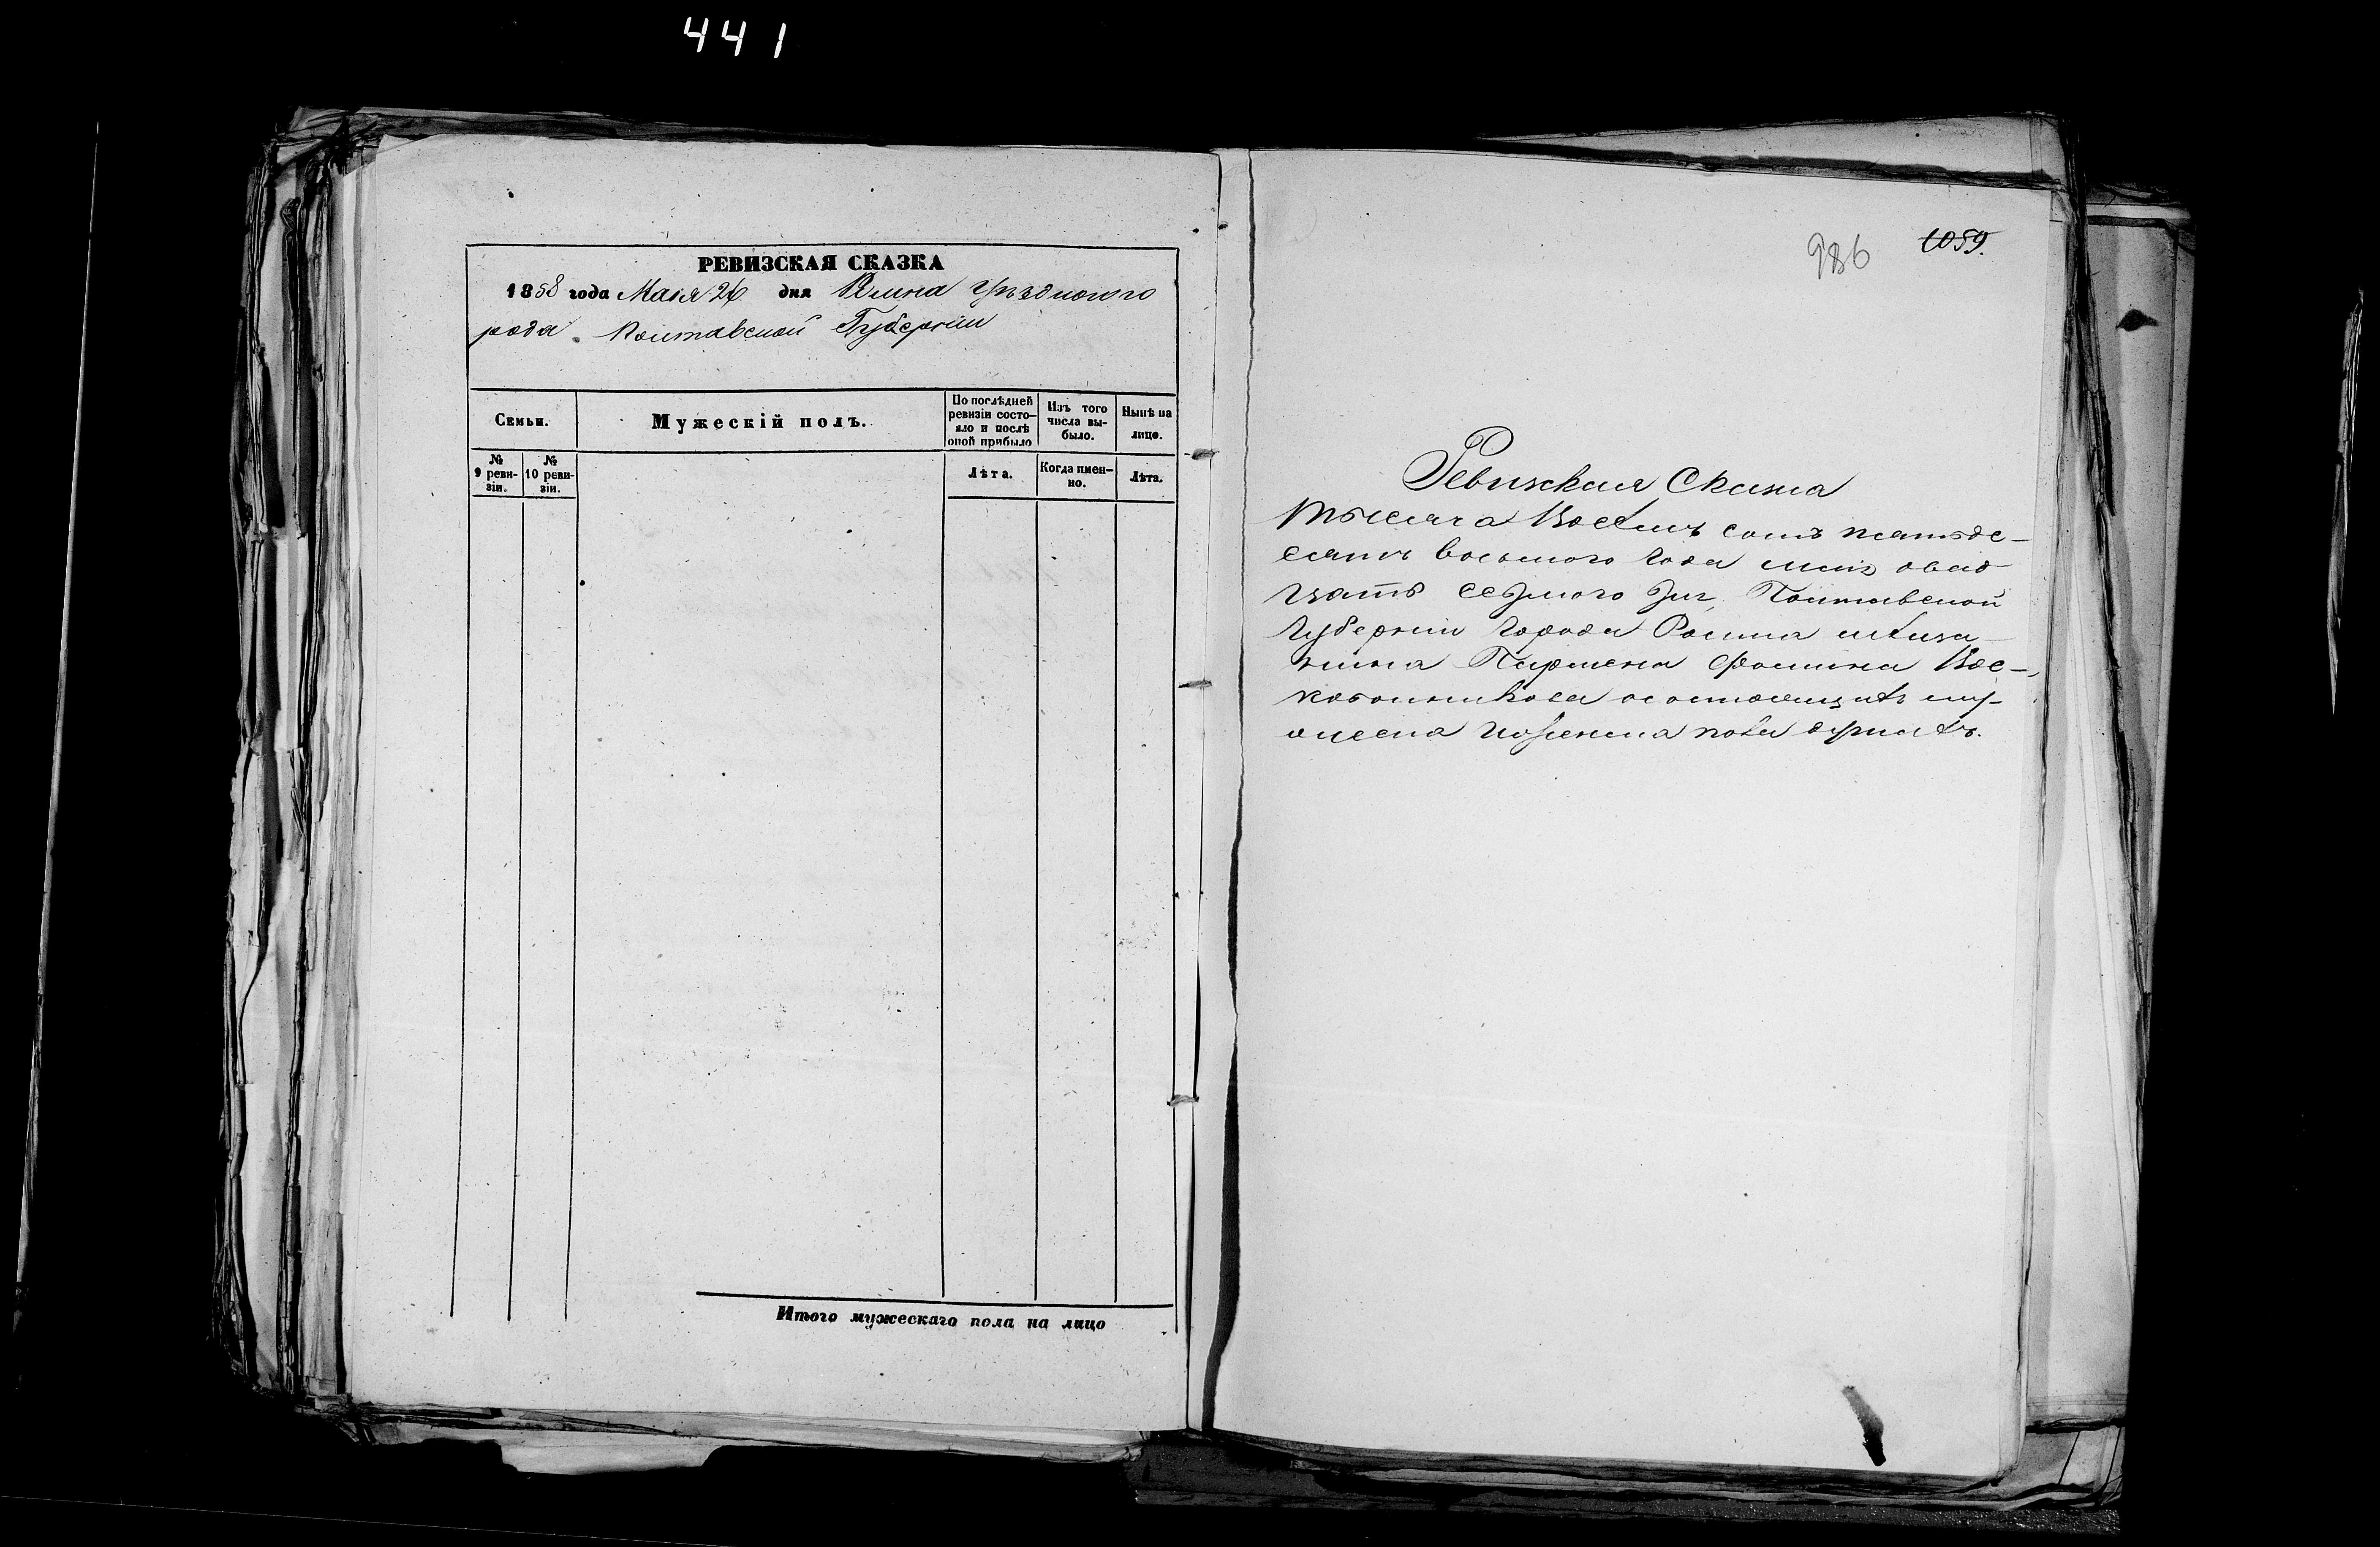 441
РЕВИЗСКАЯ СКАЗКА
1858 года Маія 26 дня Ромна Уѣзднаго го
рода Полтавской Губерніи
Семьи.
Мужескій полъ.
По послѣдней ревизіи состо-
яло и послѣ
оной прибыло
Изъ того
числа вы-
было.
Нынѣ на
лицо.
№
9 реви-
зіи.
№
10 реви-
зіи.
Лѣта.
Когда имен-
но.
Лѣта.
Итого мужескаго пола на лицо
986 1059.
Ревизская Сказка
тысяча восемь сотъ пятьде-
сятъ восьмого года маія двад
цать седмого дня, Полтавской
Губерніи города Ромна мѣща
нина Пармена Фомина Вос-
кобойникова о состоящихъ му-
жеска и женска пола душахъ.